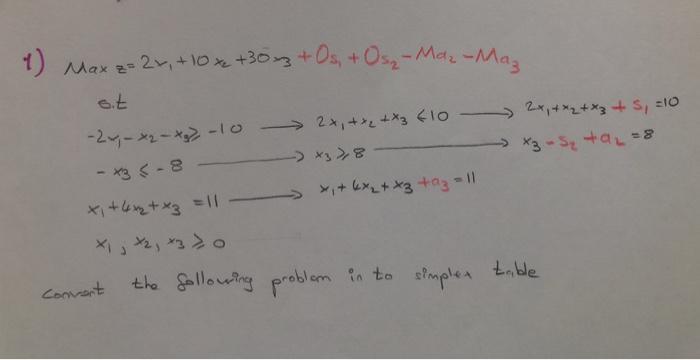 1) Max z = 2x₁ + 10x₂ + 30x₃ + 0s₁ + 0s₂ - Ma₂ - Ma₃
s.t
-2x₁ - x₂ - x₃ ≥ -10 → 2x₁ + x₂ + x₃ ≤ 10 → 2x₁ + x₂ + x₃ + s₁ = 10
- x₃ ≤ - 8 → x₃ ≥ 8 → x₃ - s₂ + a₂ = 8
x₁ + 4x₂ + x₃ = 11 → x₁ + 4x₂ + x₃ + a₃ = 11
x₁, x₂, x₃ ≥ 0
convert the following problem in to simplex table